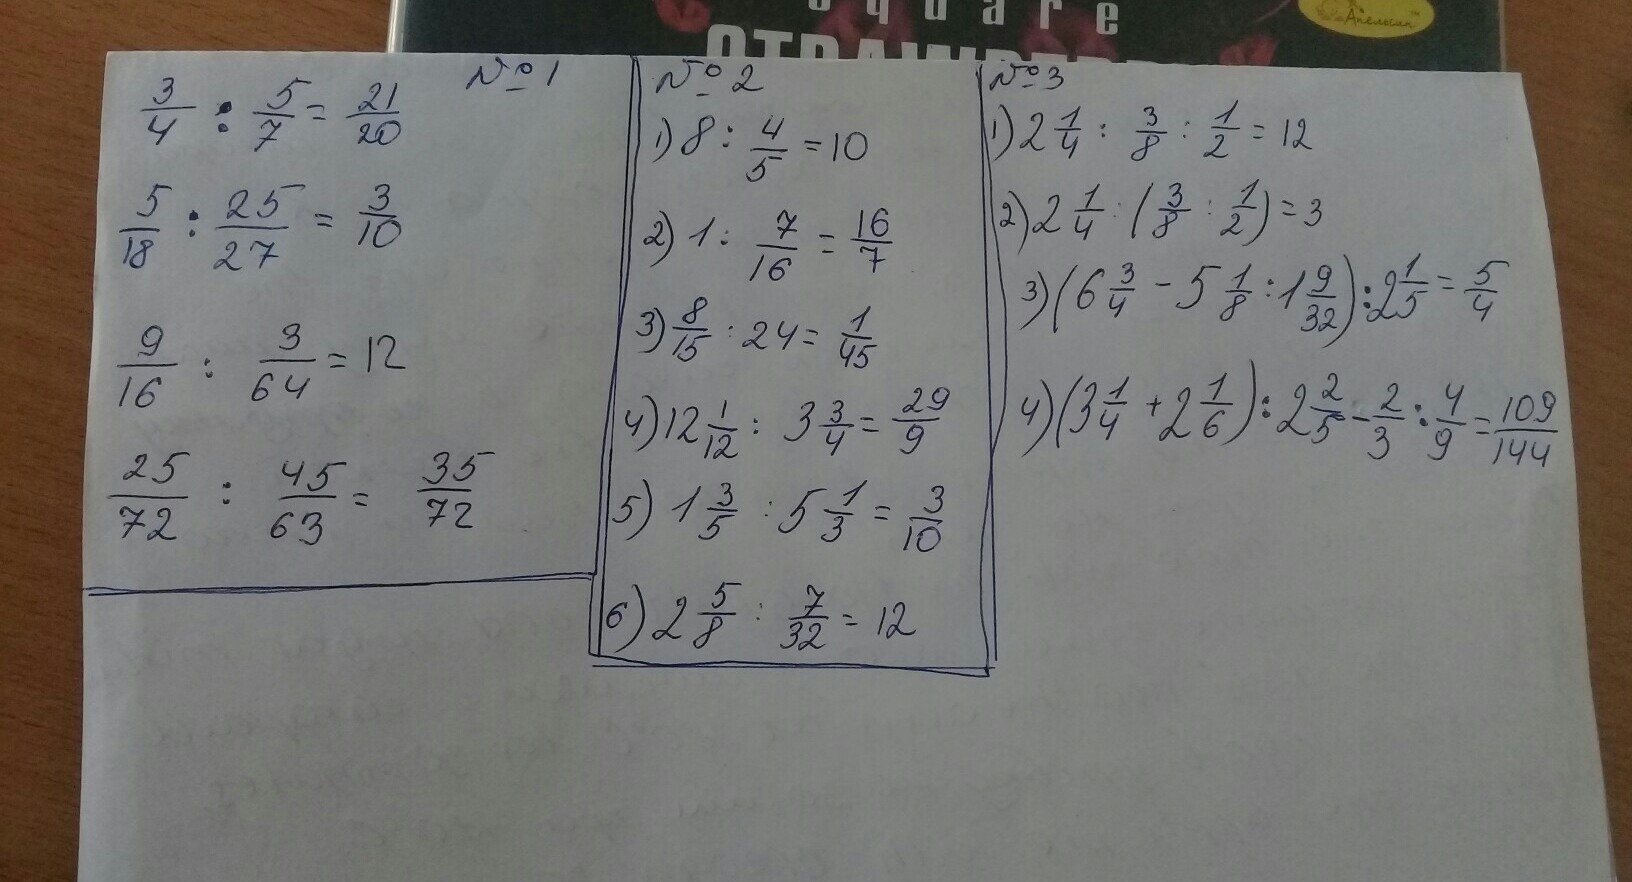 square
Апельсин™
№1
3/4 : 5/7 = 21/20
5/18 : 25/27 = 3/10
9/16 : 3/64 = 12
25/72 : 45/63 = 35/72
№2
1) 8 : 4/5 = 10
2) 1 : 7/16 = 16/7
3) 8/15 : 24 = 1/45
4) 12 1/12 : 3 3/4 = 29/9
5) 1 3/5 : 5 1/3 = 3/10
6) 2 5/8 : 7/32 = 12
№3
1) 2 1/4 : 3/8 : 1/2 = 12
2) 2 1/4 : (3/8 : 1/2) = 3
3) (6 3/4 - 5 1/8 : 1 9/32) : 2 1/5 = 5/4
4) (3 1/4 + 2 1/6) : 2 2/5 - 2/3 : 4/9 = 109/144